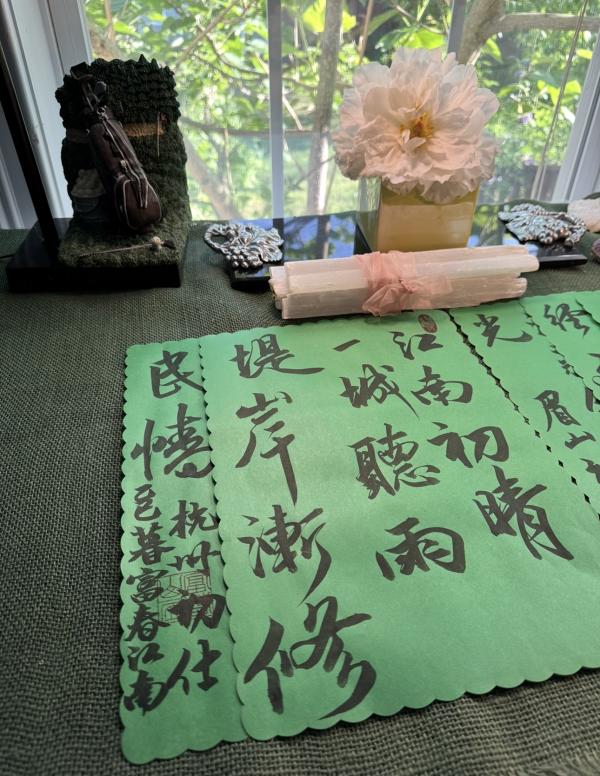 眉山
光
江南初晴
一城聽雨
堤岸漸修
民
杭州初仕
暮富春江南